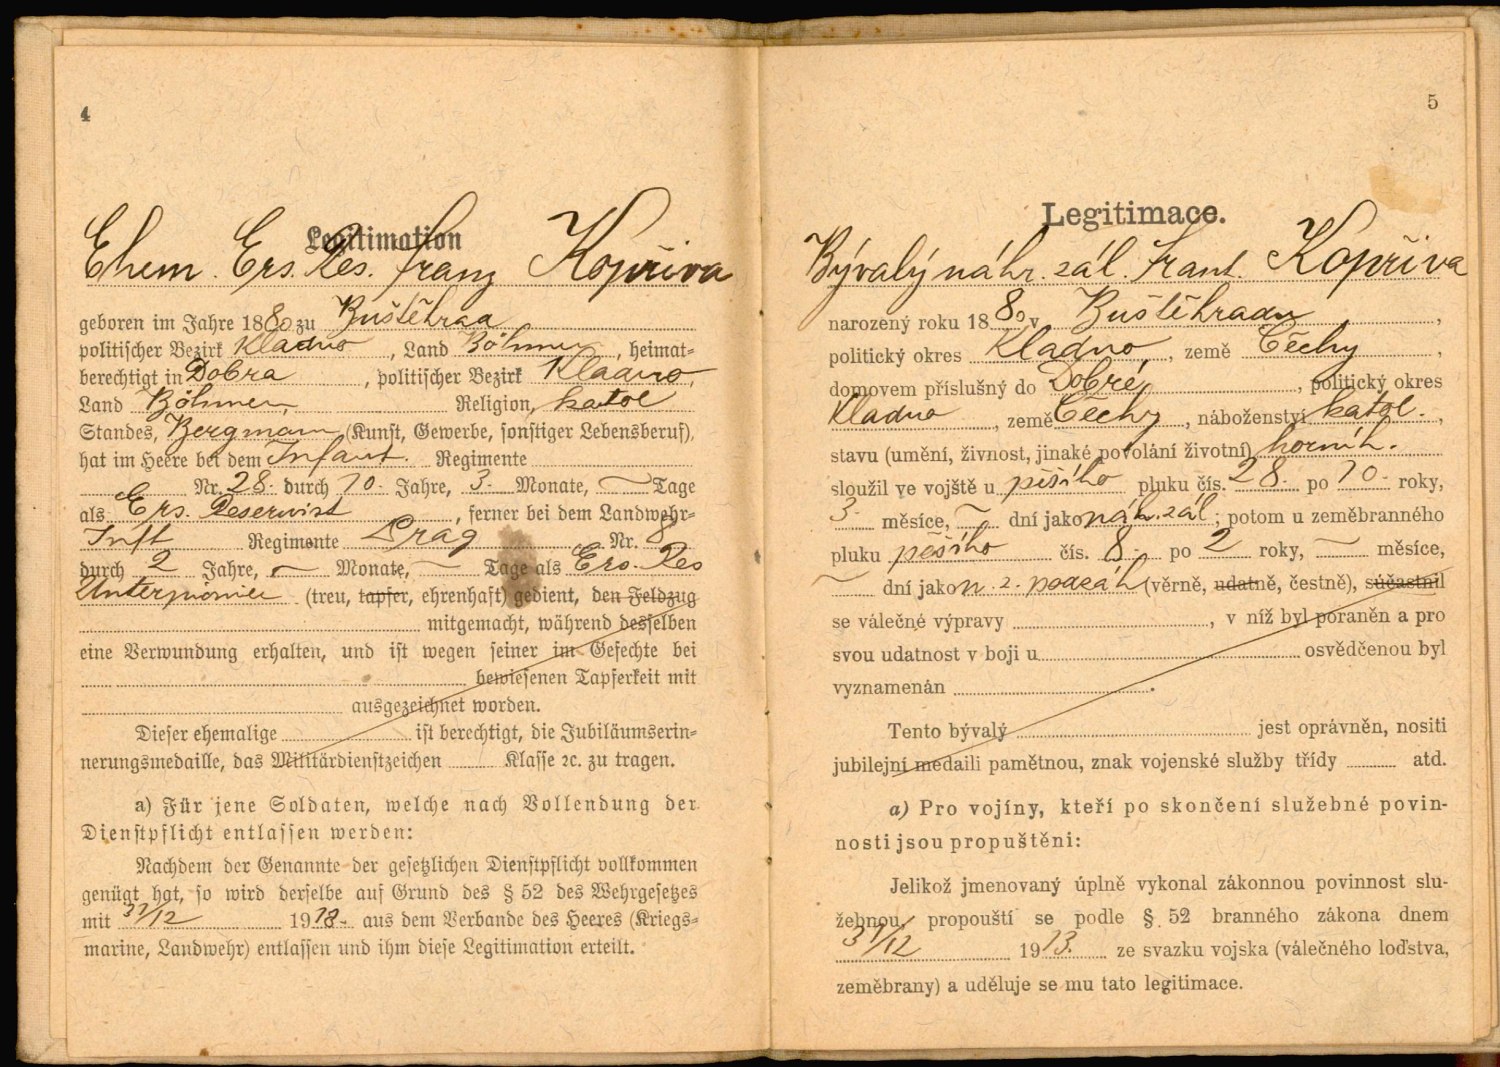 4
Legitimation
Ehem. Ers. Res. Franz Kopřiva
geboren im Jahre 1880 zu Buštěhrad
politischer Bezirk Kladno, Land Böhmen, heimat-
berechtigt in Dobra, politischer Bezirk Kladno,
Land Böhmen, Religion, katol
Standes, Bergmann (Kunst, Gewerbe, sonstiger Lebensberuf),
hat im Heere bei dem Infant. Regimente
Nr. 28. durch 10. Jahre, 3. Monate, — Tage
als Ers. Reservist, ferner bei dem Landwehr-
Inft Regimente Prag Nr. 8
durch 2 Jahre, — Monate, — Tage als Ers. Res
(treu, tapfer, ehrenhaft) gedient, den Feldzug
mitgemacht, während desselben
eine Verwundung erhalten, und ist wegen seiner im Gefechte bei
bewiesenen Tapferkeit mit
ausgezeichnet worden.
Dieser ehemalige ist berechtigt, die Jubiläumserin-
nerungsmedaille, das Militärdienstzeichen Klasse ꝛc. zu tragen.
a) Für jene Soldaten, welche nach Vollendung der
Dienstpflicht entlassen werden:
Nachdem der Genannte der gesetzlichen Dienstpflicht vollkommen
genügt hat, so wird derselbe auf Grund des § 52 des Wehrgesetzes
mit 31/12 19 aus dem Verbande des Heeres (Kriegs-
marine, Landwehr) entlassen und ihm diese Legitimation erteilt.
5
Legitimace.
Bývalý náhr. zál. Frant. Kopřiva
narozený roku 1880 v Buštěhradu,
politický okres Kladno, země Čechy,
domovem příslušný do Dobré, politický okres
Kladno, země Čechy, náboženství katol.,
stavu (umění, živnost, jinaké povolání životní) horník.
sloužil ve vojště u pěšího pluku čís. 28. po 10. roky,
3. měsíce, — dní jako náh. zál; potom u zeměbranného
pluku pěšího čís. 8. po 2 roky, — měsíce,
— dní jako n. z. (věrně, udatně, čestně), súčastnil
se válečné výpravy, v níž byl poraněn a pro
svou udatnost v boji u osvědčenou byl
vyznamenán.
Tento bývalý jest oprávněn, nositi
jubilejní medaili pamětnou, znak vojenské služby třídy atd.
a) Pro vojíny, kteří po skončení služebné povin-
nosti jsou propuštěni:
Jelikož jmenovaný úplně vykonal zákonnou povinnost slu-
žebnou, propouští se podle § 52 branného zákona dnem
31/12 1913. ze svazku vojska (válečného loďstva,
zeměbrany) a uděluje se mu tato legitimace.